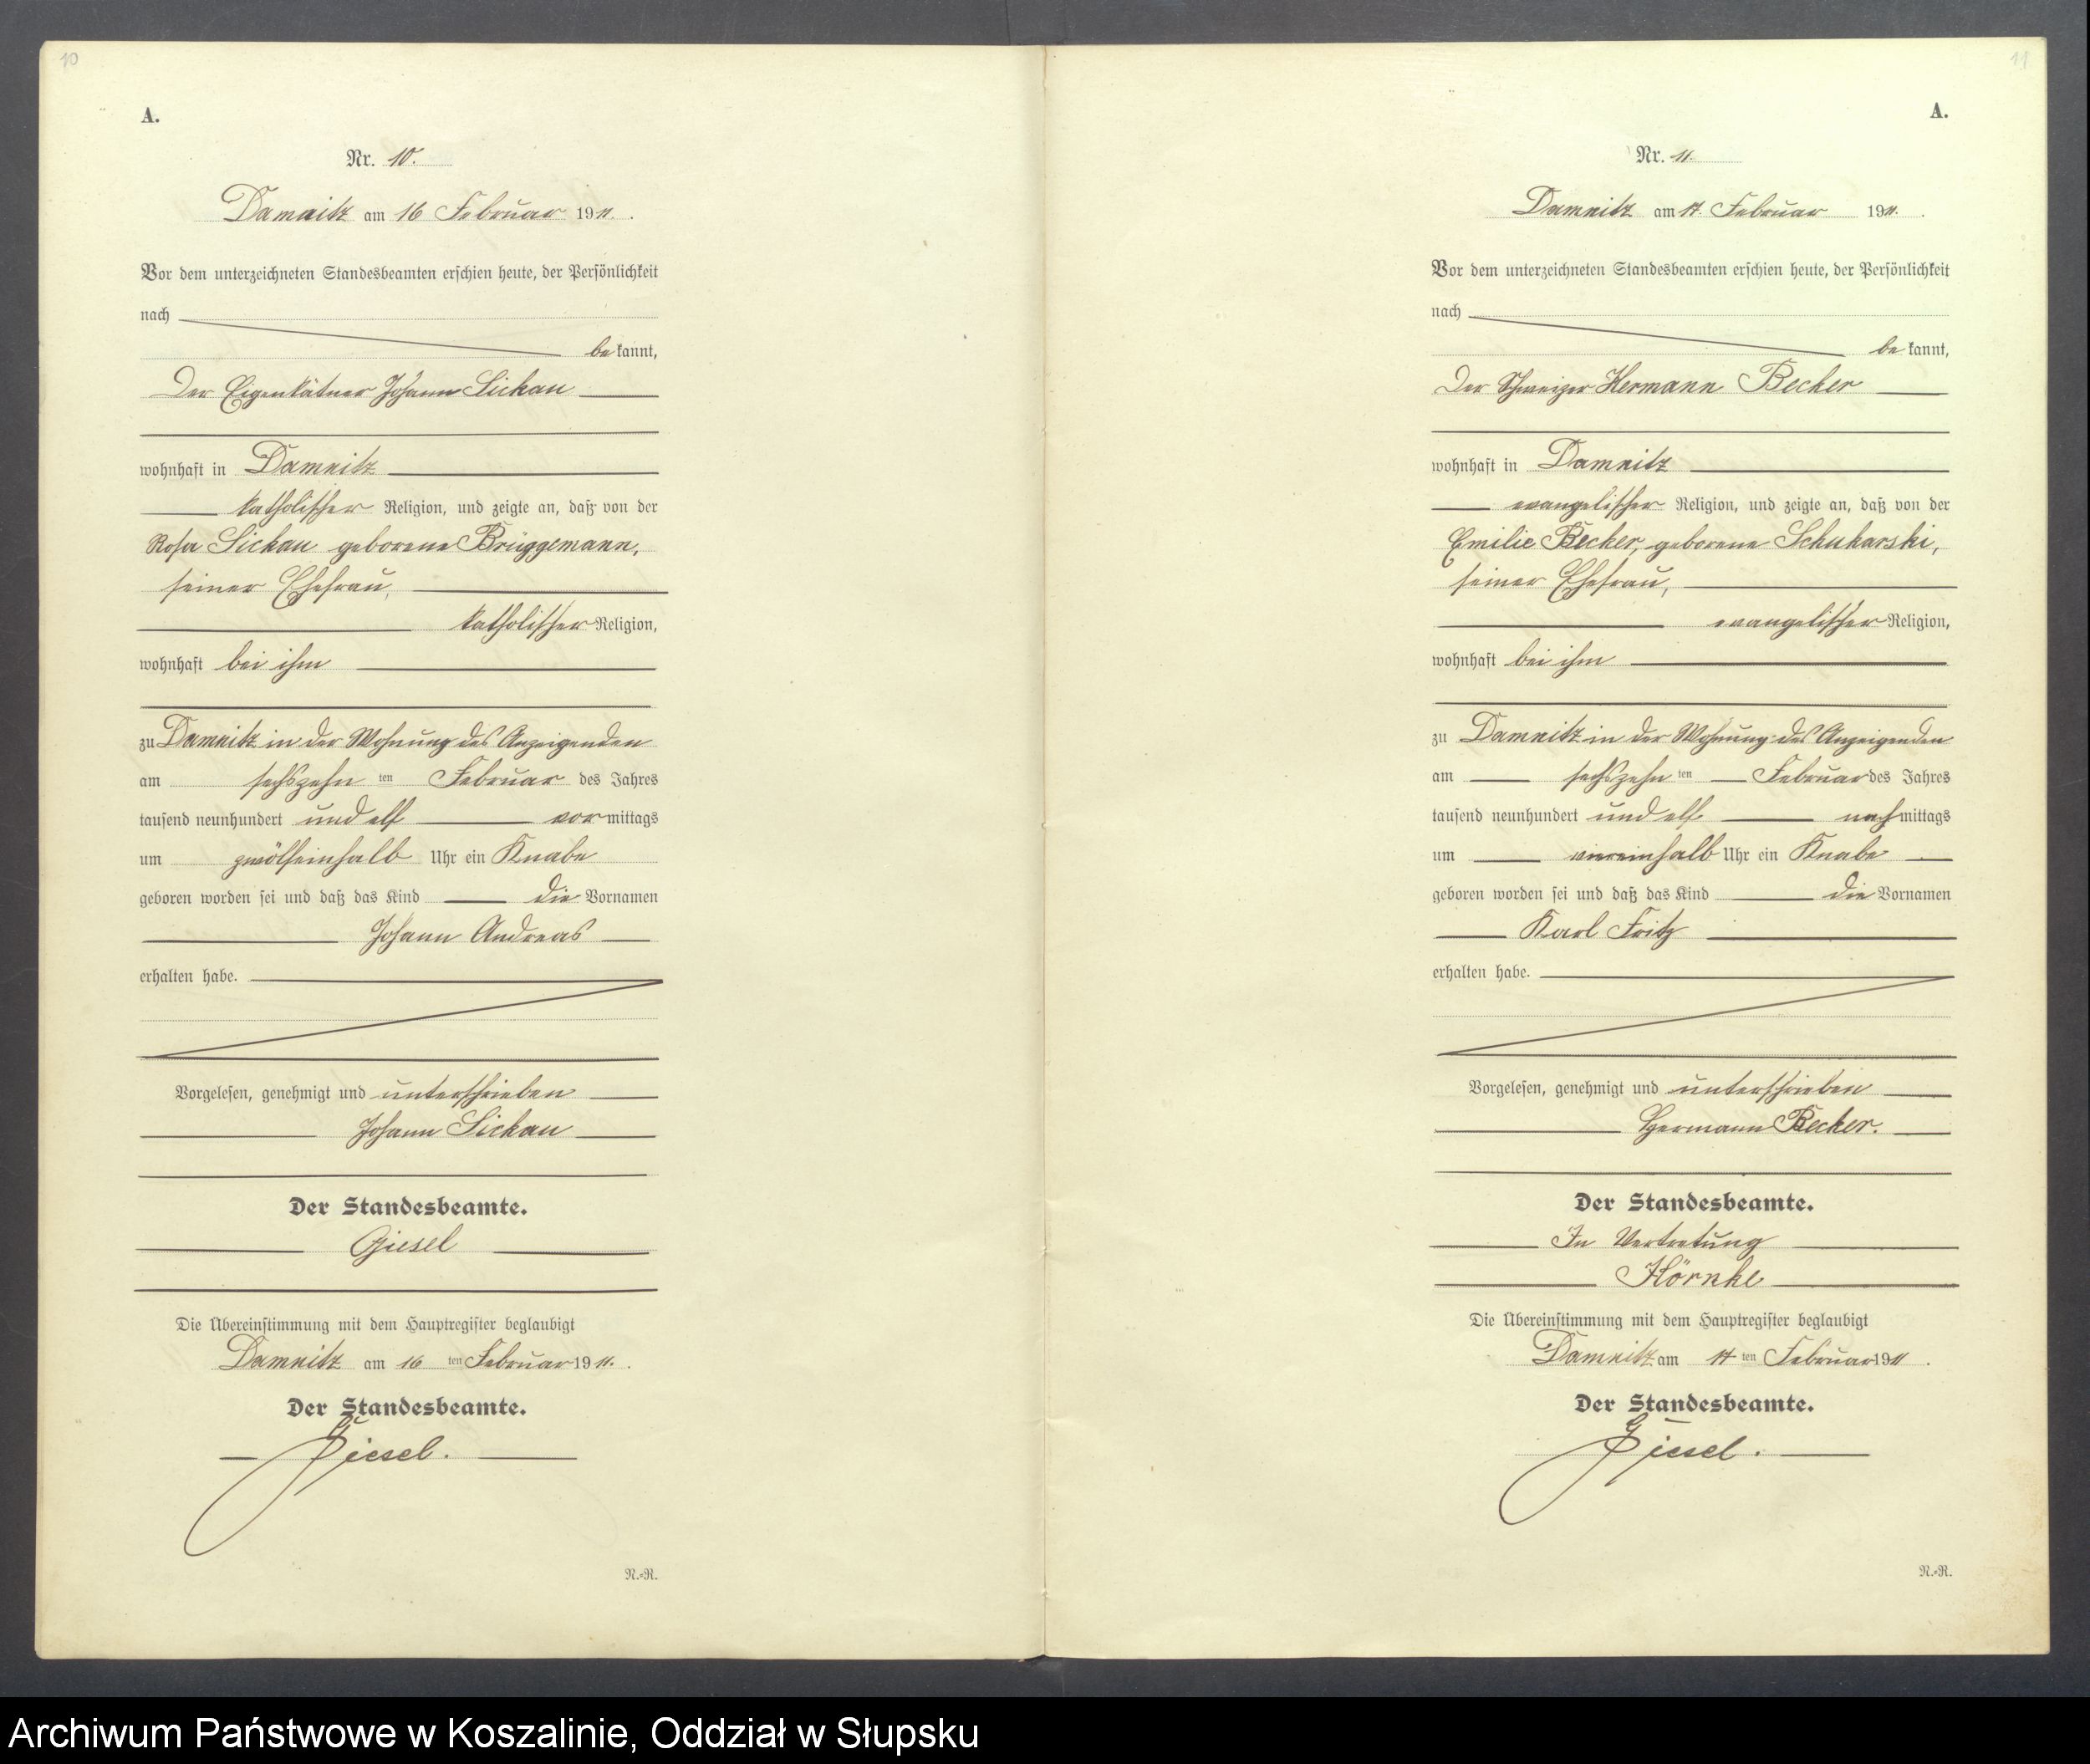 10
A.
Nr. 10.
Damnitz am 16 Februar 1911.
Vor dem unterzeichneten Standesbeamten erschien heute, der Persönlichkeit
nach
be kannt,
Der Eigenkätner Johann Lickau
wohnhaft in Damnitz
katholischer Religion, und zeigte an, daß von der
Rosa Lickau geborene Brüggemann,
seiner Ehefrau,
katholischer Religion,
wohnhaft bei ihm
zu Damnitz in der Wohnung des Anzeigenden
am sechszehn ten Februar des Jahres
tausend neunhundert und elf vor mittags
um zwölfeinhalb Uhr ein Knabe
geboren worden sei und daß das Kind die Vornamen
Johann Andreas
erhalten habe.
Vorgelesen, genehmigt und unterschrieben
Johann Lickau
Der Standesbeamte.
Giesel
Die Übereinstimmung mit dem Hauptregister beglaubigt
Damnitz am 16 ten Februar 1911.
Der Standesbeamte.
Giesel.
N.=R.
11
A.
Nr. 11.
Damnitz am 17. Februar 1911.
Vor dem unterzeichneten Standesbeamten erschien heute, der Persönlichkeit
nach
be kannt,
Der Schweizer Hermann Becker
wohnhaft in Damnitz
evangelischer Religion, und zeigte an, daß von der
Emilie Becker, geborene Schukarski,
seiner Ehefrau,
evangelischer Religion,
wohnhaft bei ihm
zu Damnitz in der Wohnung des Anzeigenden
am sechszehn ten Februar des Jahres
tausend neunhundert und elf nach mittags
um viereinhalb Uhr ein Knabe
geboren worden sei und daß das Kind die Vornamen
Karl Fritz
erhalten habe.
Vorgelesen, genehmigt und unterschrieben
Hermann Becker.
Der Standesbeamte.
In Vertretung
Hörnke
Die Übereinstimmung mit dem Hauptregister beglaubigt
Damnitz am 17 ten Februar 1911.
Der Standesbeamte.
Giesel.
N.=R.
Archiwum Państwowe w Koszalinie, Oddział w Słupsku